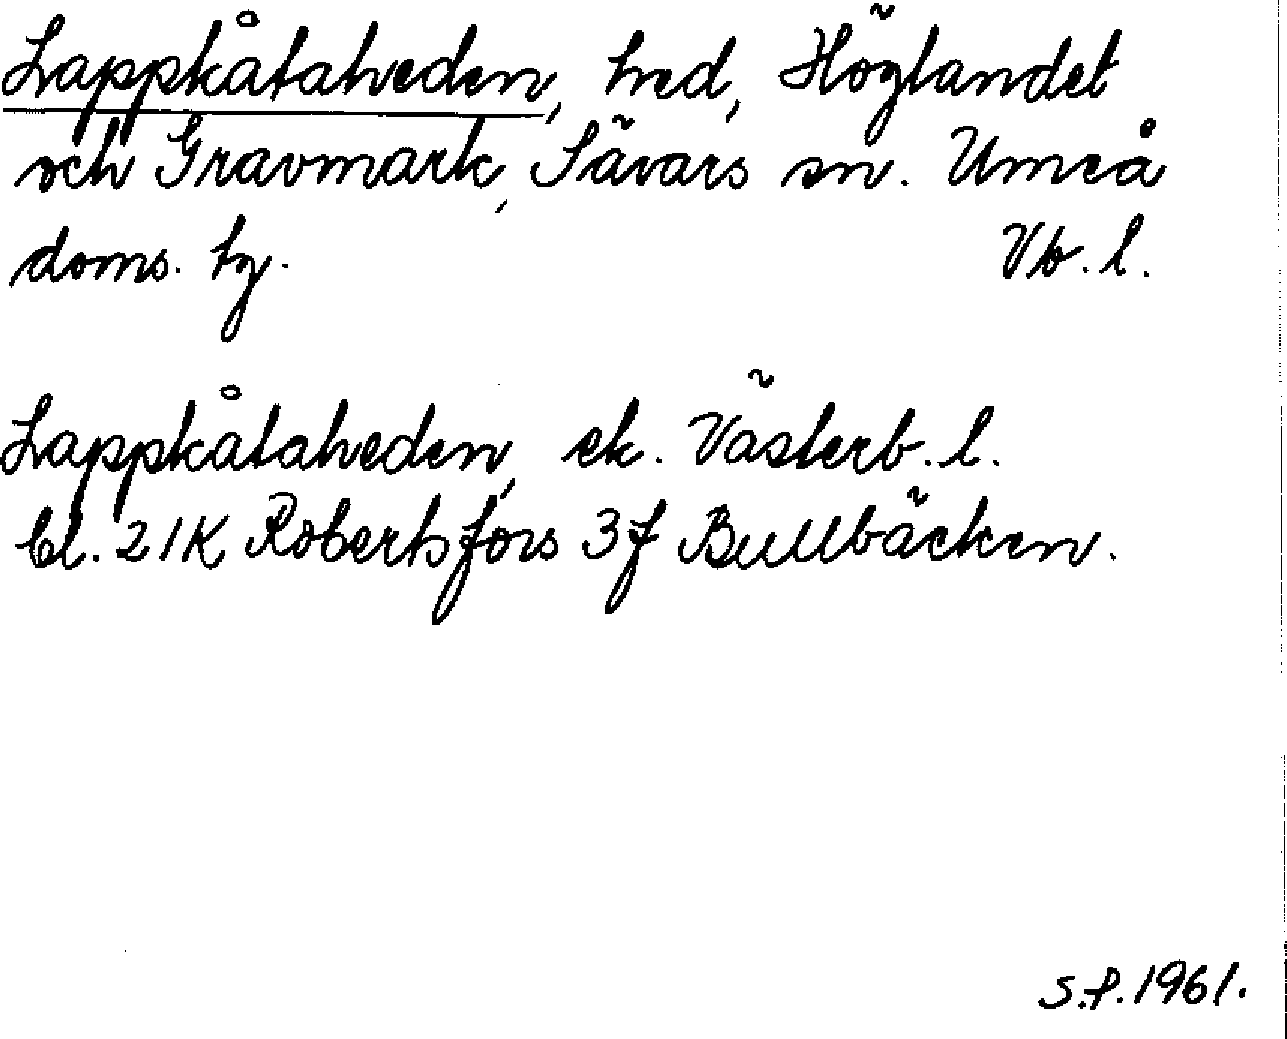 Lappkåtaheden, hed, Höglandet
och Gravmark, Sävars sn. Umeå
doms. tg. Vb. l.
Lappkåtaheden, ek. Västerb. l.
bl. 21K Robertsfors 3f Bullbäcken.
S.P. 1961.